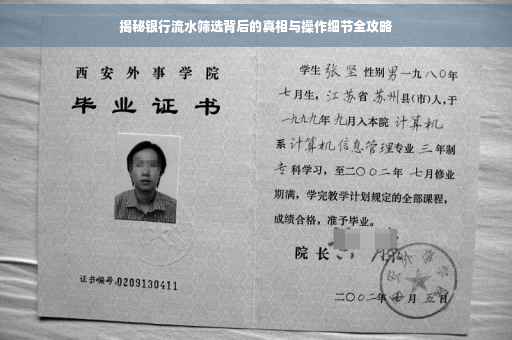 揭秘银行流水筛选背后的真相与操作细节全攻略
西安外事学院
毕业证书
证书编号:0209130411
学生张坚性别男一九八〇年
七月生，江苏省苏州县(市)人,于
一九九九年九月入本院计算机
系计算机信息管理专业三年制
专科学习，至二〇〇二年七月修业
期满，学完教学计划规定的全部课程，
成绩合格，准予毕业。
院长
二〇〇二年 月五日